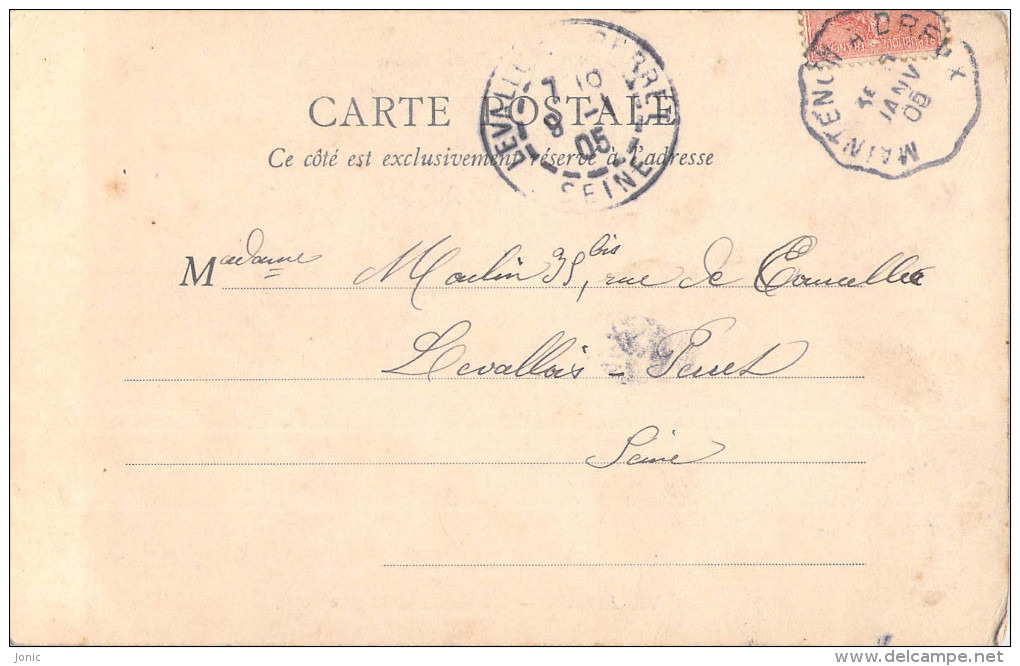 RÉPUBLIQUE FRANC
MAINTENON A DREUX
JANV
05
LEVALLOIS PERRET
7 10
8 -1
05
SEINE
CARTE POSTALE
Ce côté est exclusivement réservé à l'adresse
Madame Moulin 35 bis, rue de Courcelles
Levallois-Perret
Seine
Jonic
delcampe.net